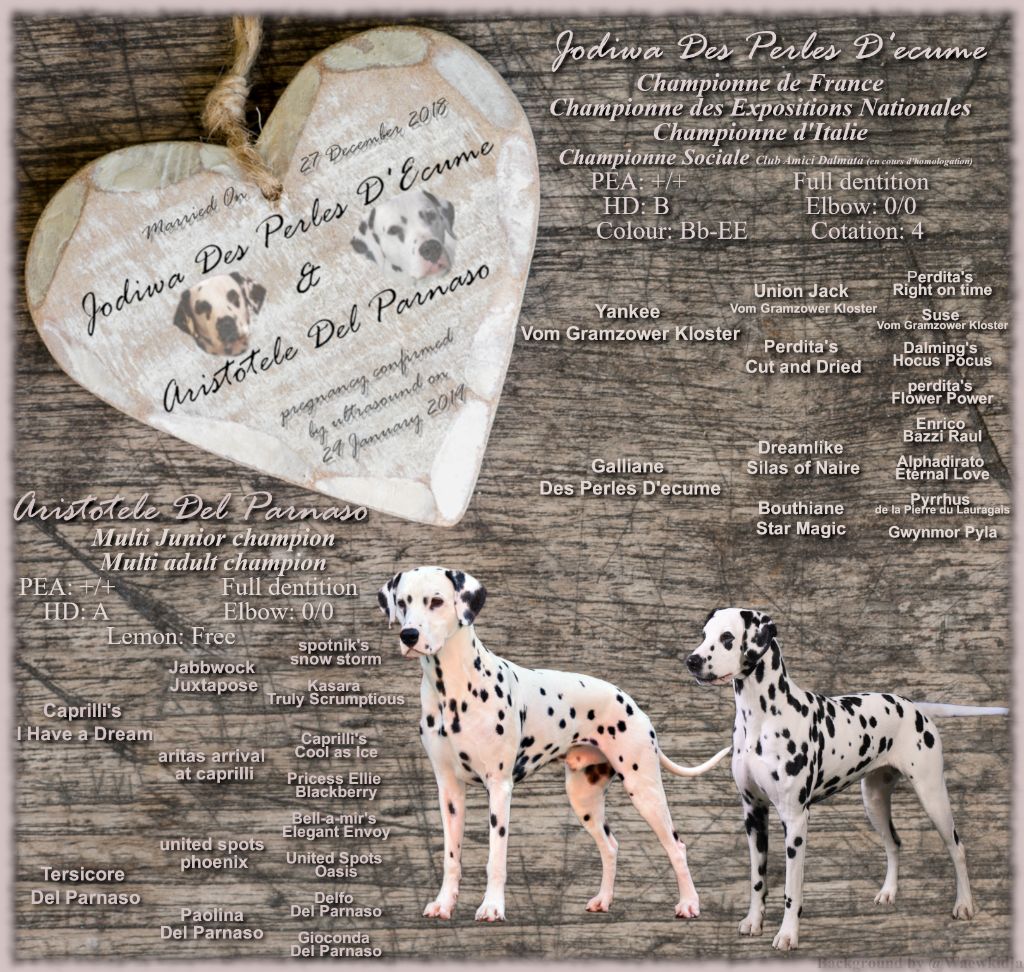 Married On 27 December 2018
Jodiwa Des Perles D'Ecume
&
Aristotele Del Parnaso
pregnancy confirmed
by ultrasound on
29 January 2019
Jodiwa Des Perles D'ecume
Championne de France
Championne des Expositions Nationales
Championne d'Italie
Championne Sociale Club Amici Dalmata (en cours d'homologation)
PEA: +/+ Full dentition
HD: B Elbow: 0/0
Colour: Bb-EE Cotation: 4
Yankee
Vom Gramzower Kloster
Union Jack
Vom Gramzower Kloster
Perdita's
Cut and Dried
Perdita's
Right on time
Suse
Vom Gramzower Kloster
Dalming's
Hocus Pocus
perdita's
Flower Power
Galliane
Des Perles D'ecume
Dreamlike
Silas of Naire
Bouthiane
Star Magic
Enrico
Bazzi Raul
Alphadirato
Eternal Love
Pyrrhus
de la Pierre du Lauragais
Gwynmor Pyla
Aristotele Del Parnaso
Multi Junior champion
Multi adult champion
PEA: +/+ Full dentition
HD: A Elbow: 0/0
Lemon: Free
Caprilli's
I Have a Dream
Jabbwock
Juxtapose
aritas arrival
at caprilli
spotnik's
snow storm
Kasara
Truly Scrumptious
Caprilli's
Cool as Ice
Pricess Ellie
Blackberry
Tersicore
Del Parnaso
united spots
phoenix
Paolina
Del Parnaso
Bell-a-mir's
Elegant Envoy
United Spots
Oasis
Delfo
Del Parnaso
Gioconda
Del Parnaso
Background by @Waewkidja